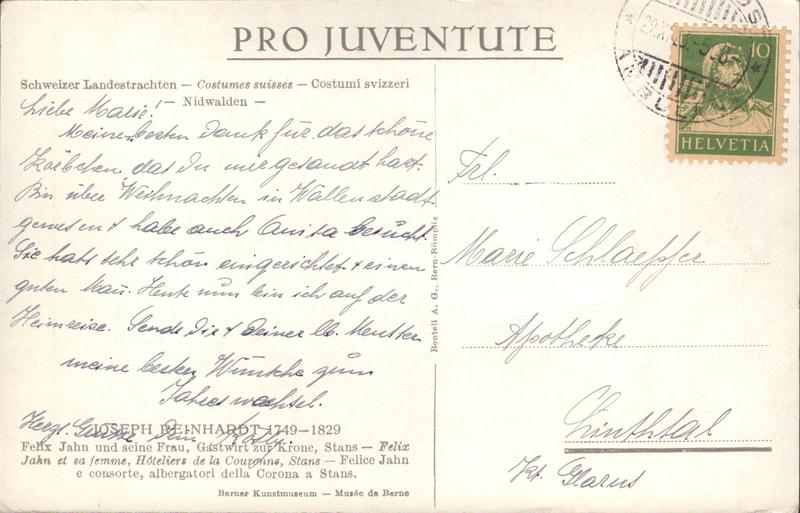 PRO JUVENTUTE
Schweizer Landestrachten — Costumes suisses — Costumi svizzeri
— Nidwalden —
Liebe Marie!
Meinen besten Dank für das schöne
Körbchen das Du mir gesandt hast.
Bin über Weihnachten in Wallenstadt
gewesen & habe auch Anita besucht.
Sie hats sehr schön eingerichtet & einen
guten Mann. Heute nun bin ich auf der
Heimreise. Sende Dir & Deiner lb. Mutter
meine besten Wünsche zum
Jahreswechsel.
Herzl. Grüsse Dein
JOSEPH REINHARDT 1749–1829
Felix Jahn und seine Frau, Gastwirt zur Krone, Stans — Felix
Jahn et sa femme, Hôteliers de la Couronne, Stans — Felice Jahn
e consorte, albergatori della Corona a Stans.
Berner Kunstmuseum — Musée de Berne
Benteli A. G., Bern-Bümpliz
10
HELVETIA
Frl.
Marie Schlaepfer
Apotheke
Linthtal
Kt. Glarus